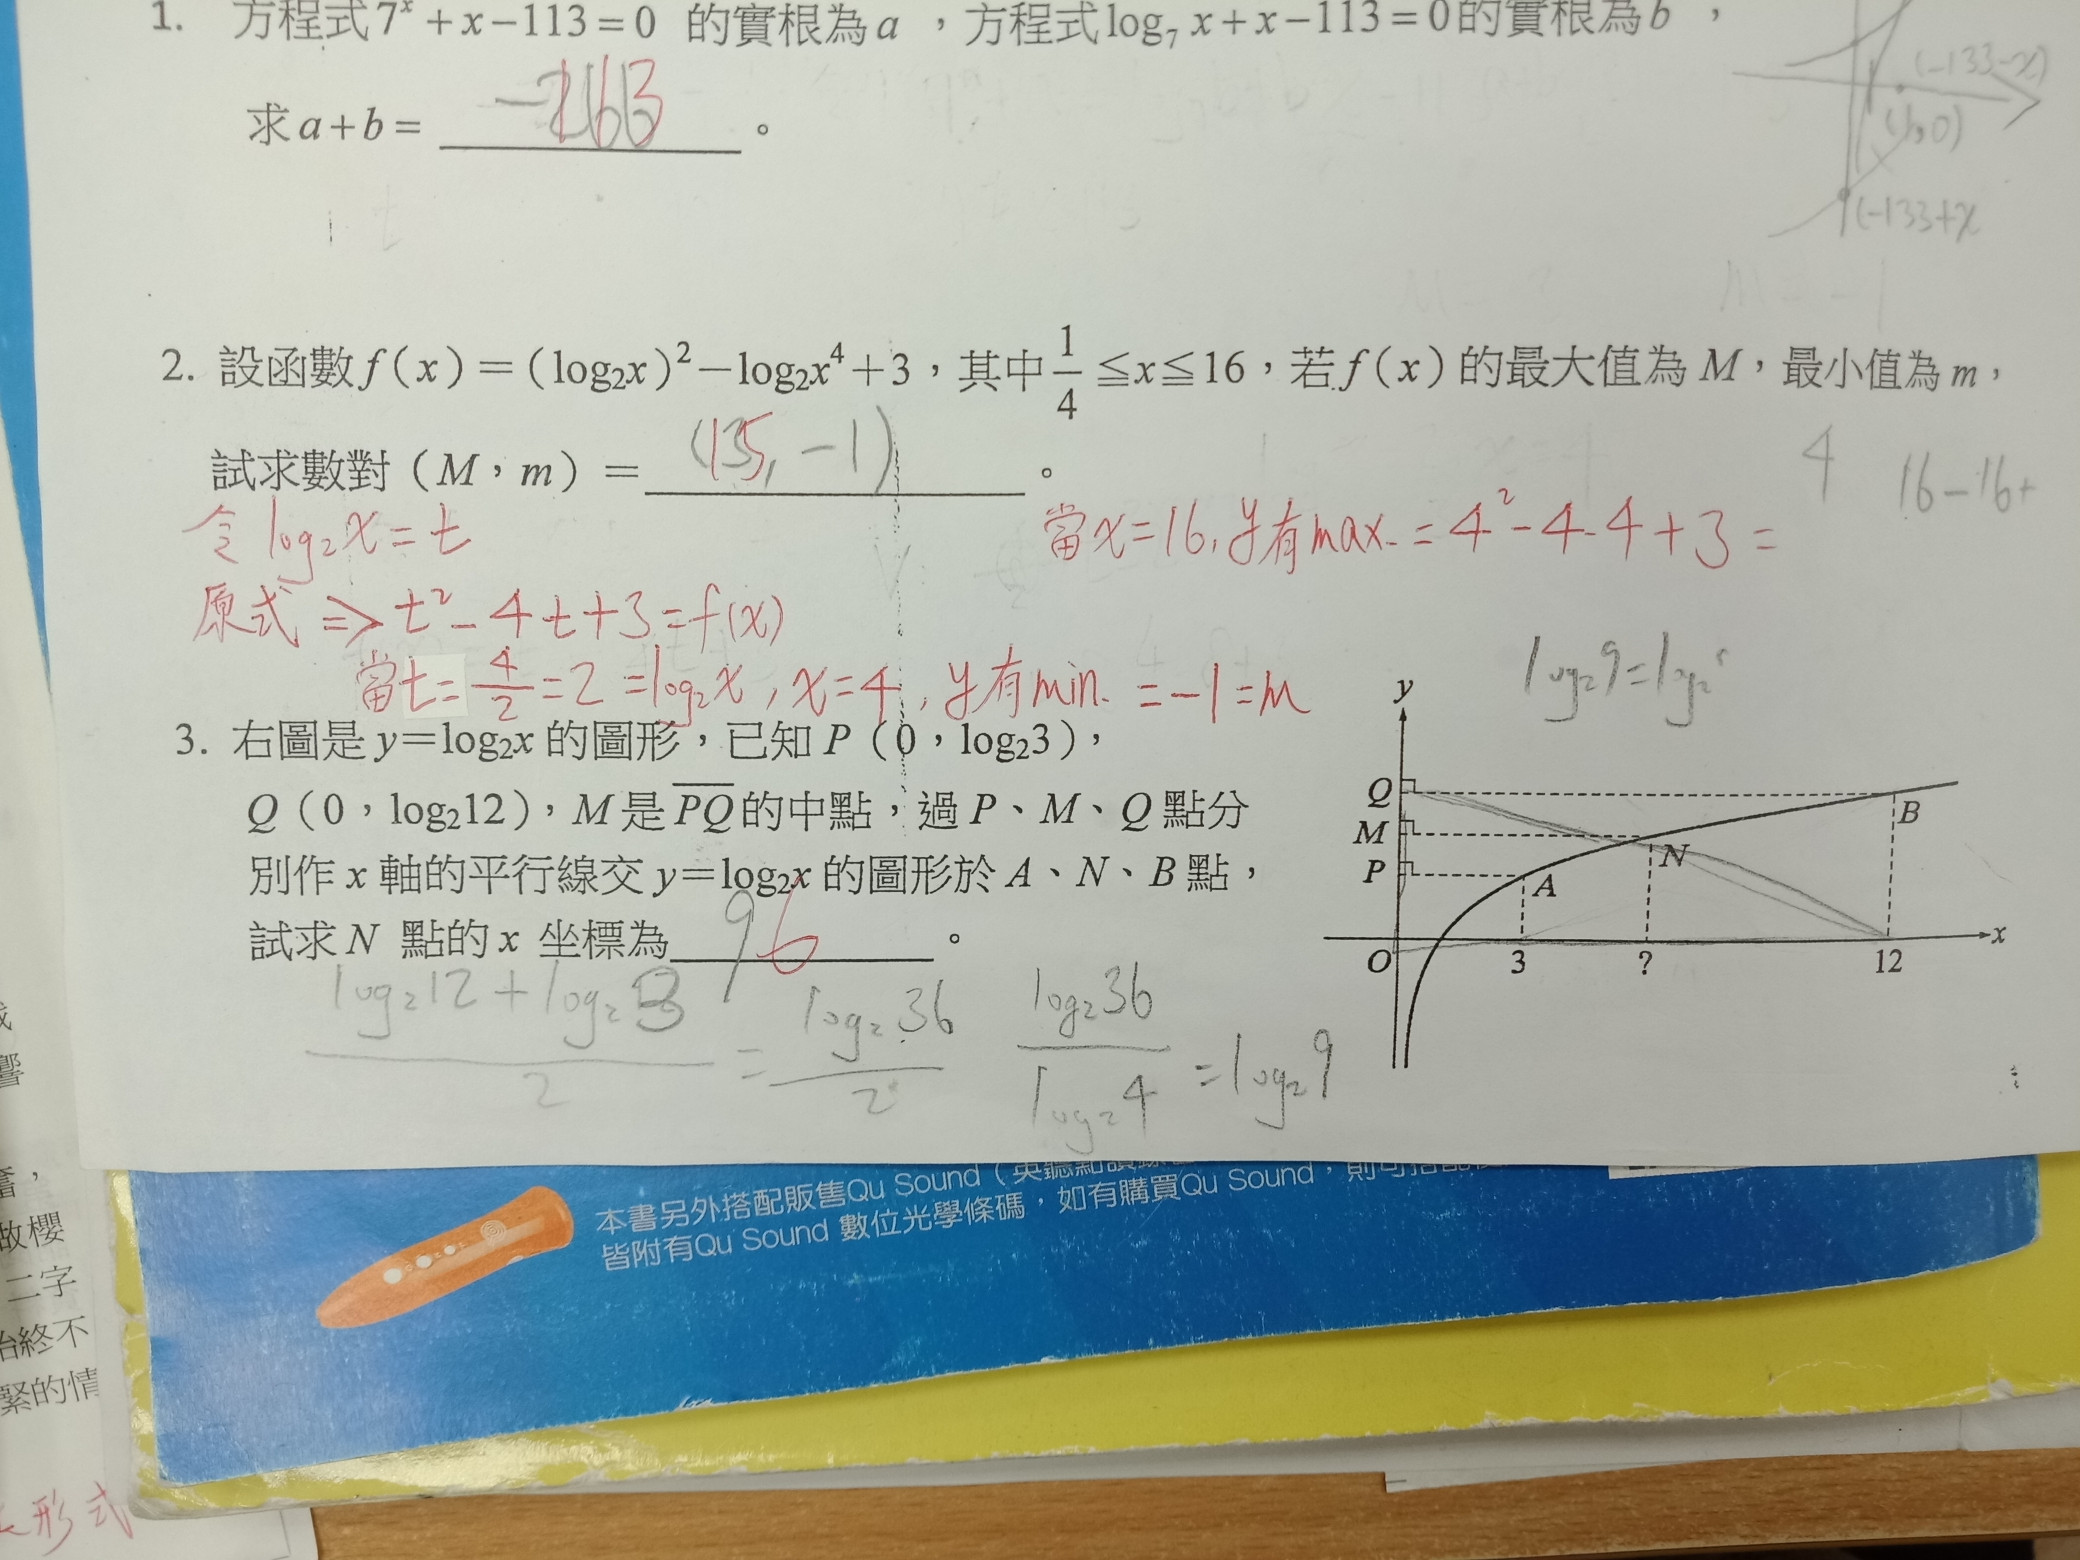 1. 方程式 7ˣ + x − 113 = 0 的實根為 a ，方程式 log₇ x + x − 113 = 0 的實根為 b ，
求 a + b = 。
(-133-x)
(1,0)
(-133+x
2. 設函數 f(x) = (log₂x)² − log₂x⁴ + 3，其中 1/4 ≦ x ≦ 16，若 f(x) 的最大值為 M，最小值為 m，
試求數對（M，m）＝ (15, -1) 。
4 16-16+
令 log₂x = t
當x=16, y有max. = 4²-4·4+3=
原式 => t²-4t+3=f(x)
當t=4/2=2=log₂x, x=4, y有min. =-1=m
log₂9=log₂
3. 右圖是 y＝log₂x 的圖形，已知 P（0，log₂3），
Q（0，log₂12），M 是 PQ 的中點，過 P、M、Q 點分
別作 x 軸的平行線交 y＝log₂x 的圖形於 A、N、B 點，
試求 N 點的 x 坐標為 9 6 。
(log₂12+log₂3)/2 = log₂36/2
log₂36/log₂4 = log₂9
y
Q
B
M
N
P
A
O 3 ? 12 x
本書另外搭配販售Qu Sound（英聽點讀
皆附有Qu Sound 數位光學條碼，如有購買Qu Sound，則可搭配
響
故櫻
二字
始終不
緊的情
形式